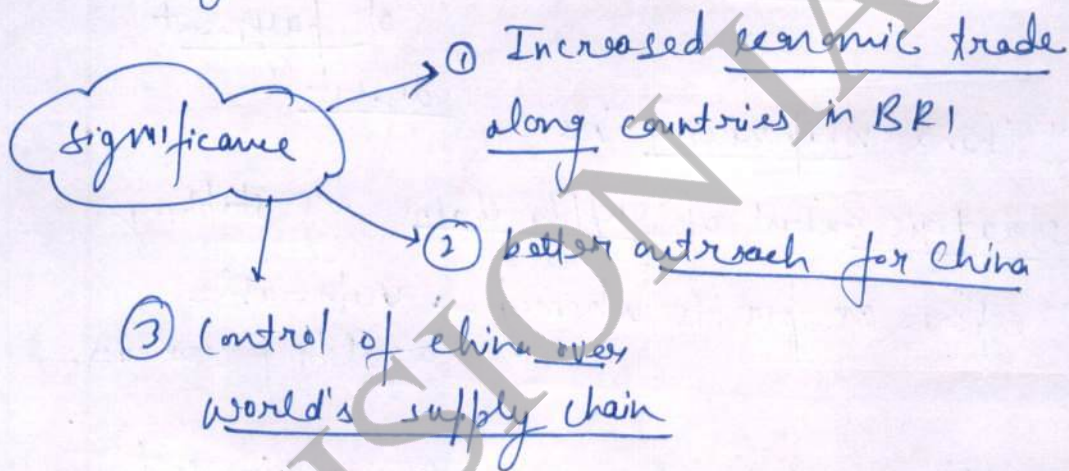 significance
① Increased economic trade
along countries in BRI
② better outreach for China
③ Control of china over
world's supply chain
VISION IA